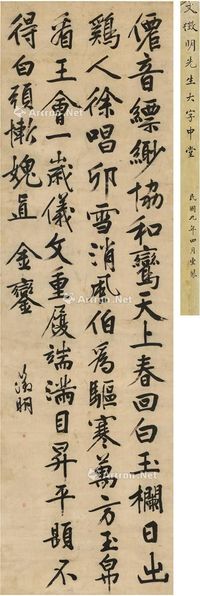 文徵明先生大字中堂
民國九年四月重裝
僊音縹緲協和鸞天上春回白玉欄日出
鷄人徐唱卯雪消風伯爲驅寒萬方玉帛
看王會一歲儀文重履端滿目昇平題不
得白頭慚媿直金鑾
徵明
Artron.Net